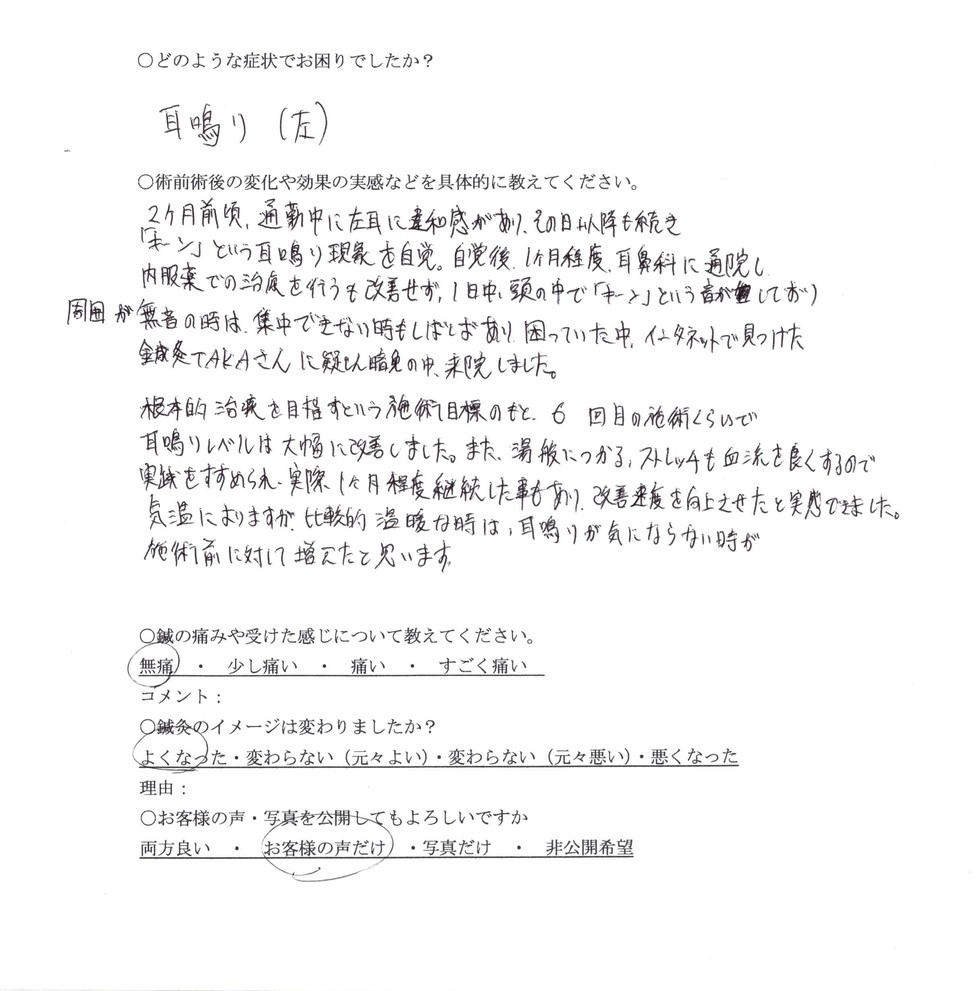 ○どのような症状でお困りでしたか？
耳鳴り（左）
○術前術後の変化や効果の実感などを具体的に教えてください。
2ケ月前頃、通勤中に左耳に違和感があり、その日以降も続き
「キーン」という耳鳴り現象を自覚。自覚後、1ケ月程度、耳鼻科に通院し
内服薬での治療を行うも改善せず、1日中、頭の中で「キーン」という音がしており
周囲が無音の時は、集中できない時もしばしばあり、困っていた中、インタネットで見つけた
鍼灸TAKAさんに疑心暗鬼の中、来院しました。
根本的治療を目指すという施術目標のもと、6回目の施術くらいで
耳鳴りレベルは大幅に改善しました。また、湯船につかる、ストレッチも血流を良くするので
実践をすすめられ、実際、1ケ月程度継続した事もあり、改善速度を向上させたと実感できました。
気温によりますが、比較的温暖な時は、耳鳴りが気にならない時が
施術前に対して増えたと思います。
○鍼の痛みや受けた感じについて教えてください。
無痛　・　少し痛い　・　痛い　・　すごく痛い
コメント：
○鍼灸のイメージは変わりましたか？
よくなった・変わらない（元々よい）・変わらない（元々悪い）・悪くなった
理由：
○お客様の声・写真を公開してもよろしいですか
両方良い　・　お客様の声だけ　・写真だけ　・　非公開希望